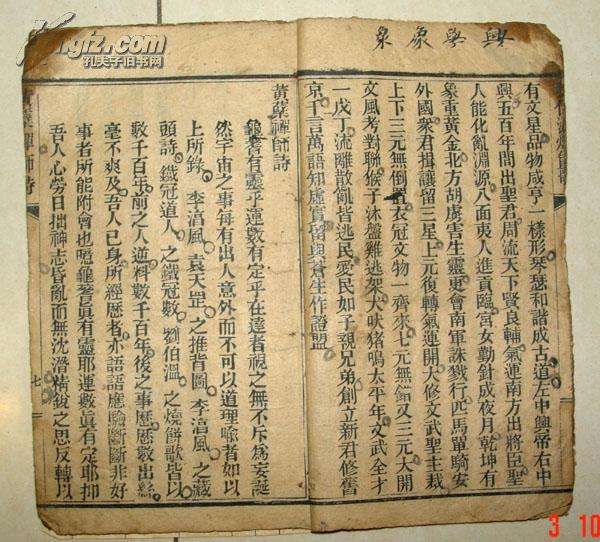 kongfz.com
孔夫子旧书网
象象學興
有文星品物咸亨一樣形琴瑟和諧成古道左中興帝右中
興五百年間出聖君周流天下賢良輔氣運南方出將臣聖
人能化亂淵源八面夷人進貢臨宮女勤針成夜月乾坤有
象重黃金北方胡虜害生靈更會南軍誅戮行匹馬單騎安
外國眾君揖讓留三星上元復轉氣運開大修文武聖主裁
上下三元無倒置衣冠文物一齊來七元無錯又三元大開
文風考對聯猴子沐盤雞逃架犬吠猪鳴太平年文武全才
一戊丁流離散亂皆逃民愛民如子親兄弟創立新君修舊
京千言萬語知虛實留與蒼生作證盟
黃蘗禪師詩
龜蓍有靈乎運數有定乎在達者視之無不斥爲妄誕
然宇宙之事每有出人意外而不可以道理喻者如以
上所錄李淳風袁天罡之推背圖李淳風之藏
頭詩鐵冠道人之鐵冠數劉伯溫之燒餅歌皆以
數千百年前之人逆料數千百年後之事歷歷數出絲
毫不爽及吾人已身所經歷者亦語語應驗斷斷非好
事者所能附會也噫龜蓍眞有靈耶運數眞有定耶抑
吾人心勞日拙神志昏亂而無沈潛精銳之思反轉以
禪師詩
七
3 10